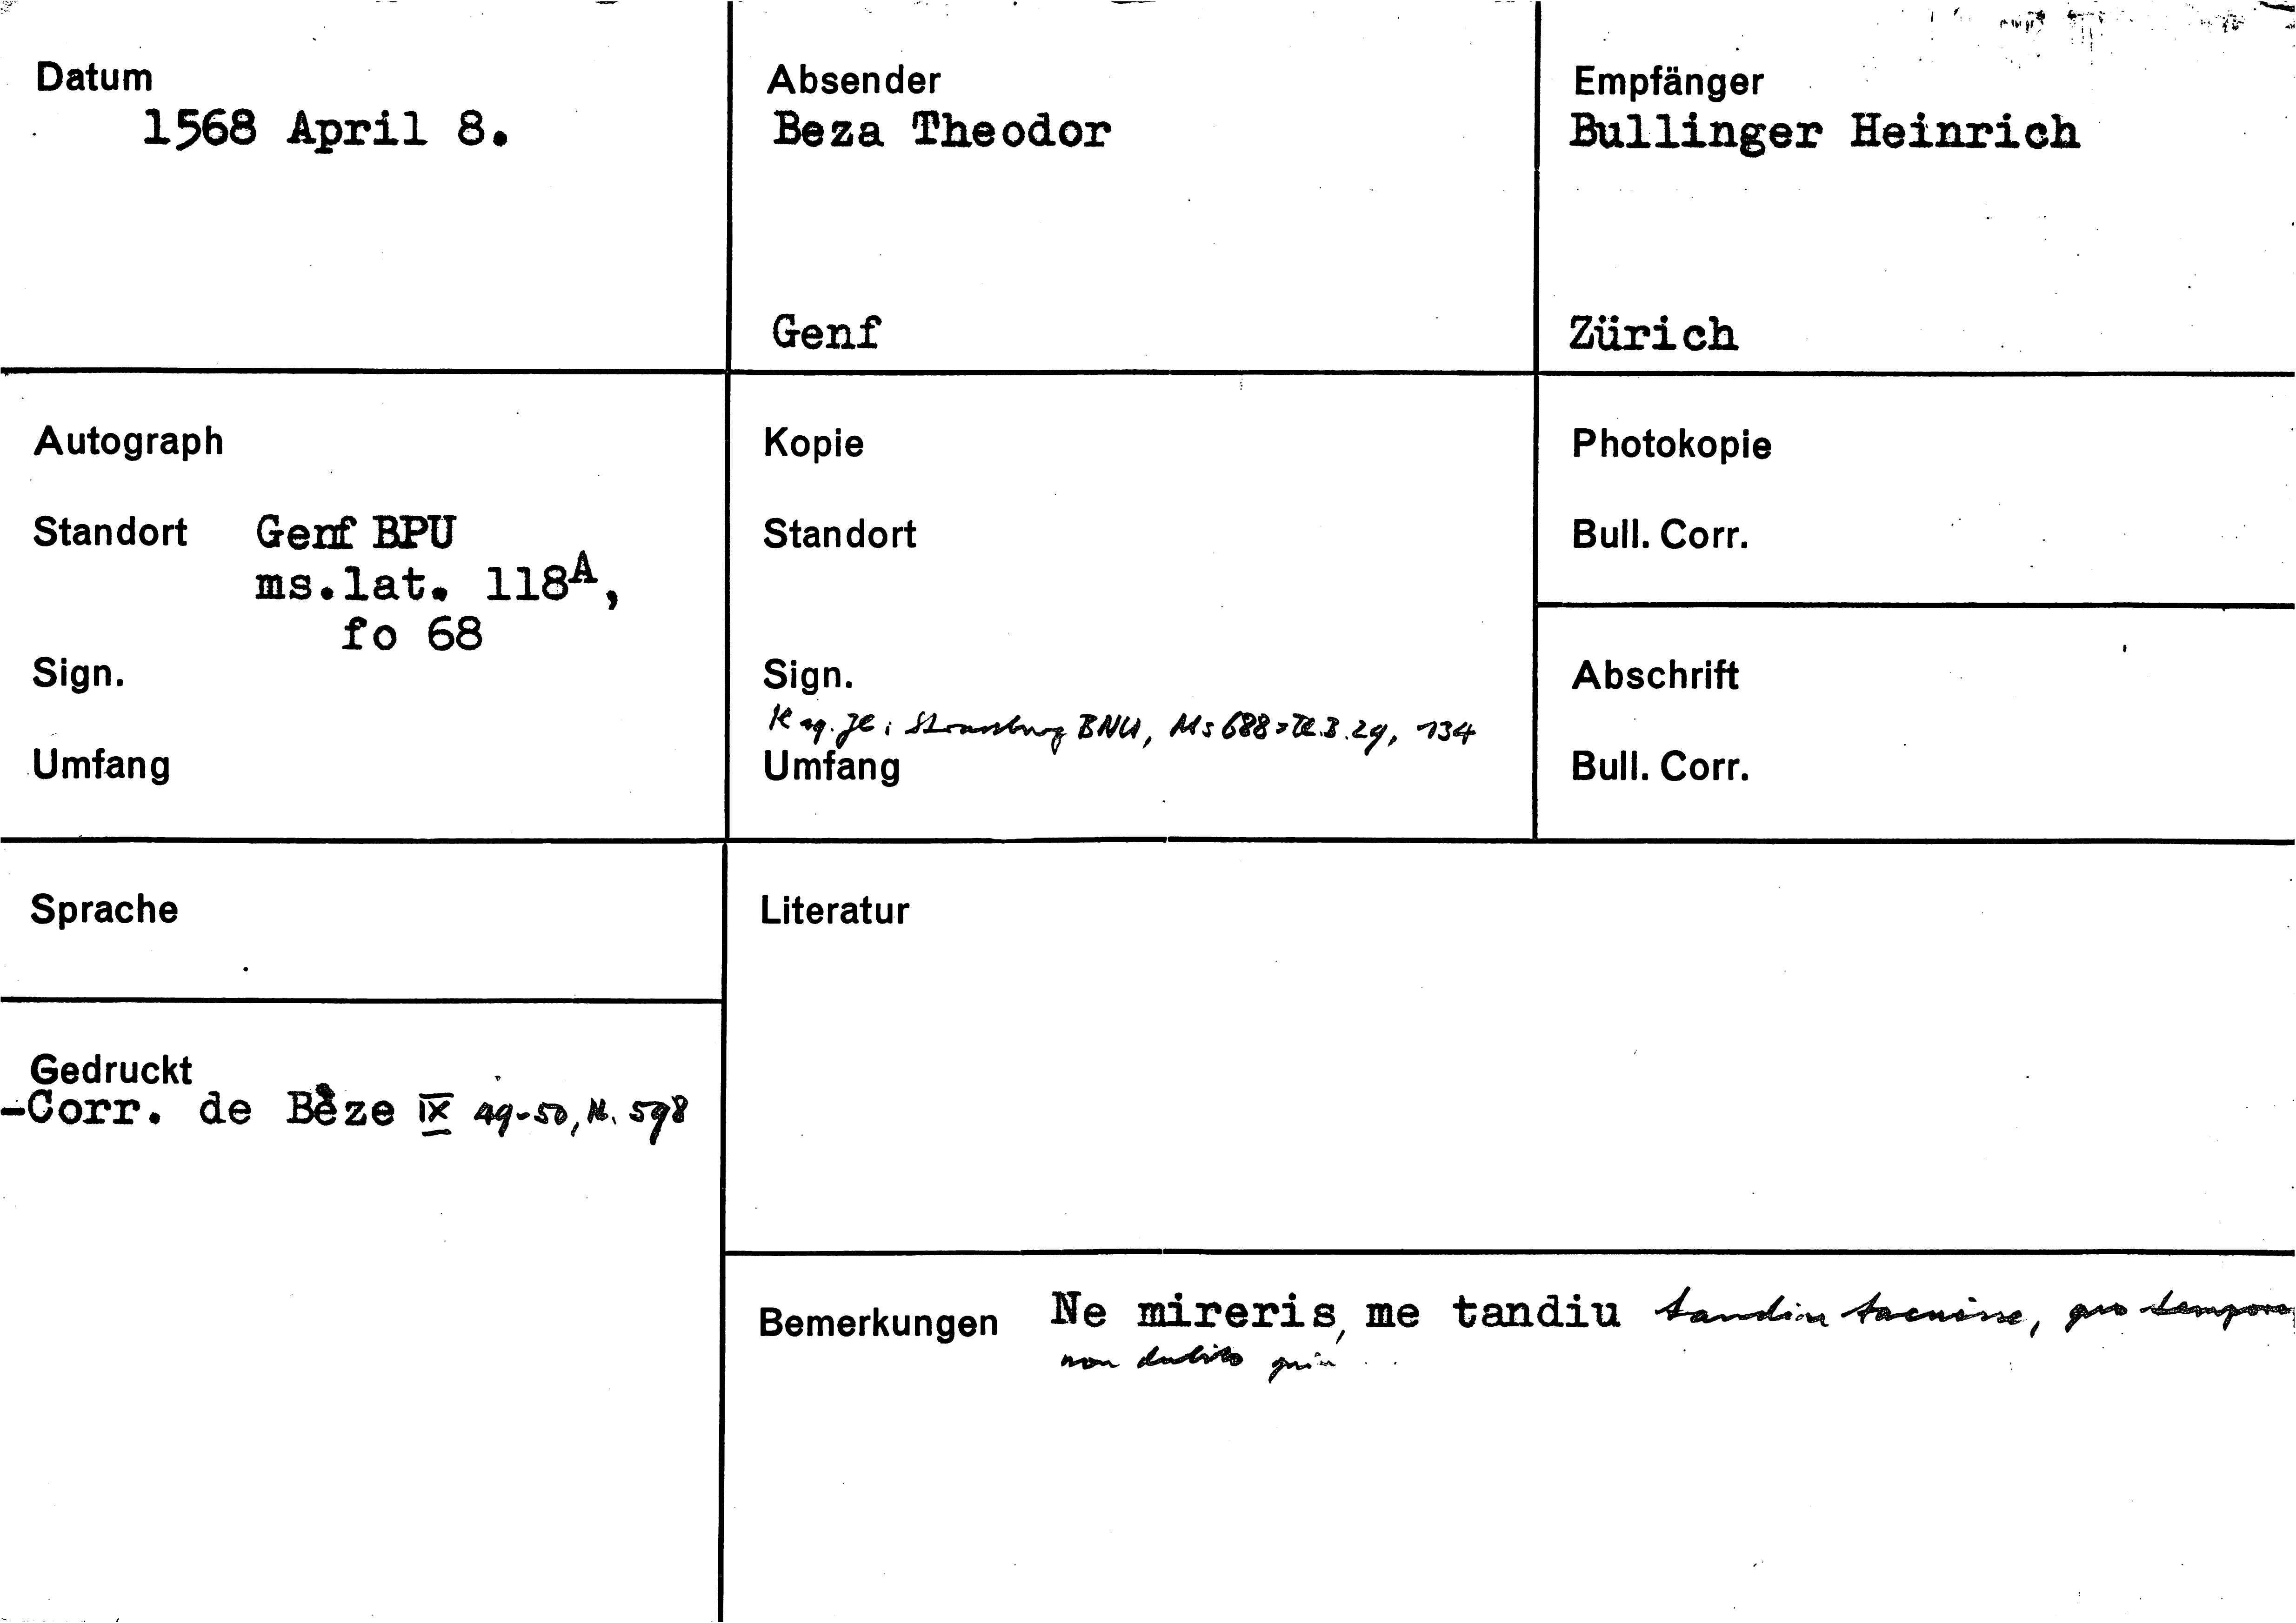 Datum
1568 April 8.
Absender
Beza Theodor
Genf
Empfänger
Bullinger Heinrich
Zürich
Autograph
Standort Genf BPU
ms.lat. 118A,
fo 68
Sign.
Umfang
Kopie
Standort
Sign.
Strassburg BNU, Ms 688 134
Umfang
Photokopie
Bull. Corr.
Abschrift
Bull. Corr.
Sprache
Gedruckt
-Corr. de Bèze IX 49-50, N. 598
Literatur
Bemerkungen Ne mireris, me tandiu tandiu tacuisse, quo tempore
non dubito quin...